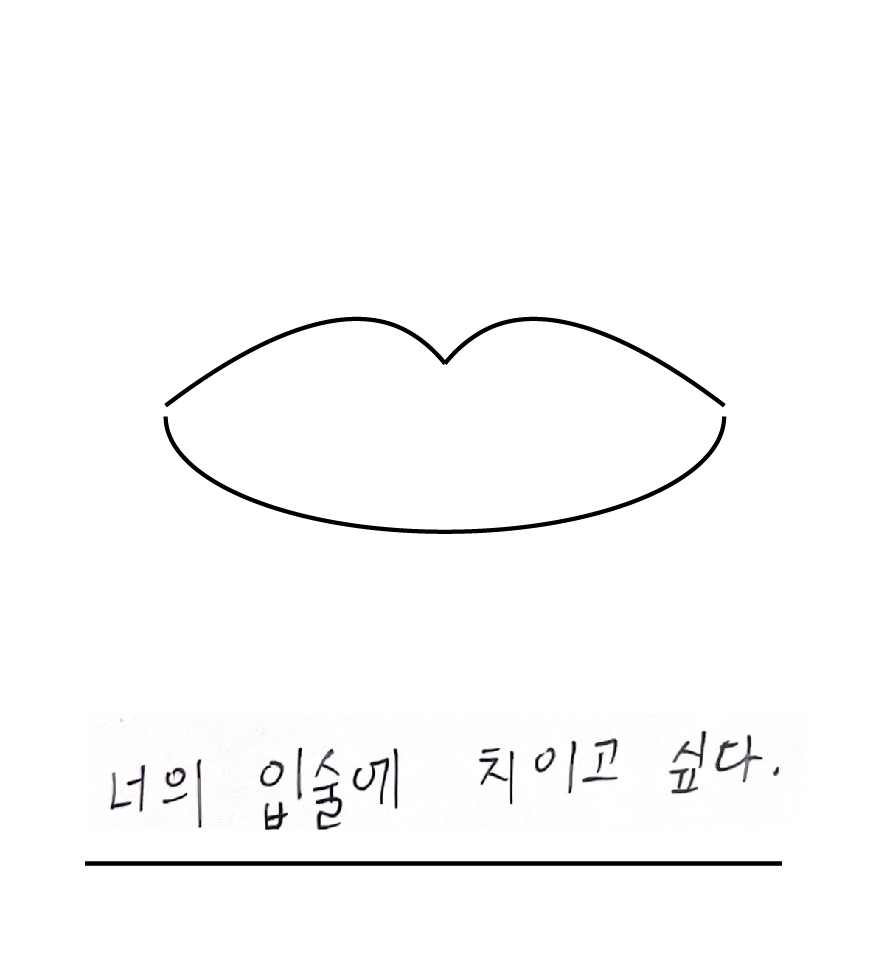 너의 입술에 치이고 싶다.